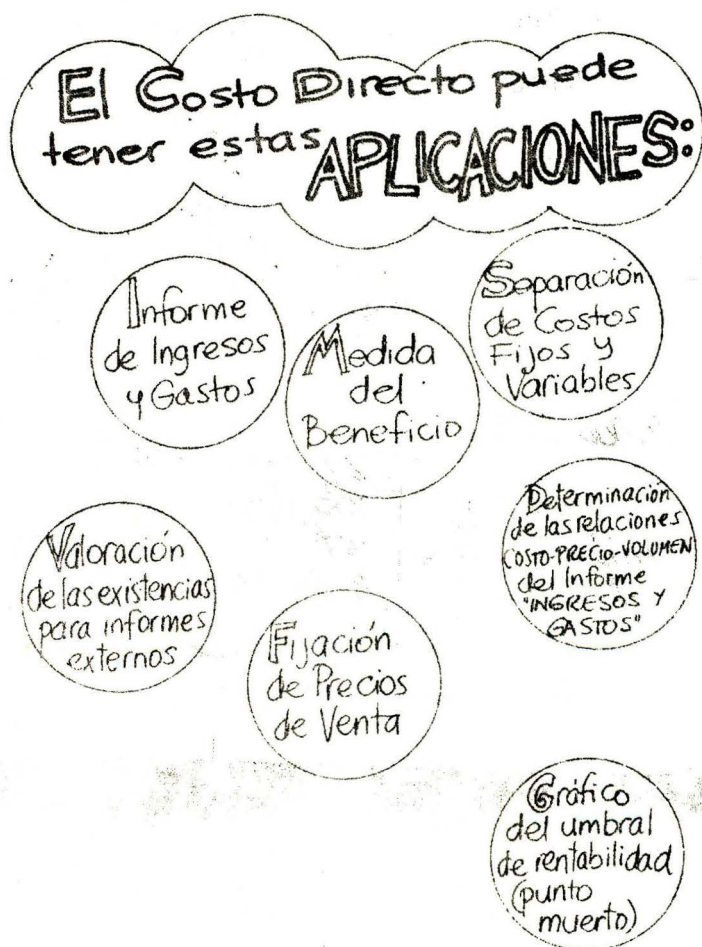 El Costo Directo puede
tener estas APLICACIONES:
Informe
de Ingresos
y Gastos
Medida
del
Beneficio
Separación
de Costos
Fijos y
Variables
Valoración
de las existencias
para informes
externos
Fijación
de Precios
de Venta
Determinación
de las relaciones
COSTO-PRECIO-VOLUMEN
del Informe
"INGRESOS Y
GASTOS"
Gráfico
del umbral
de rentabilidad
(punto
muerto)